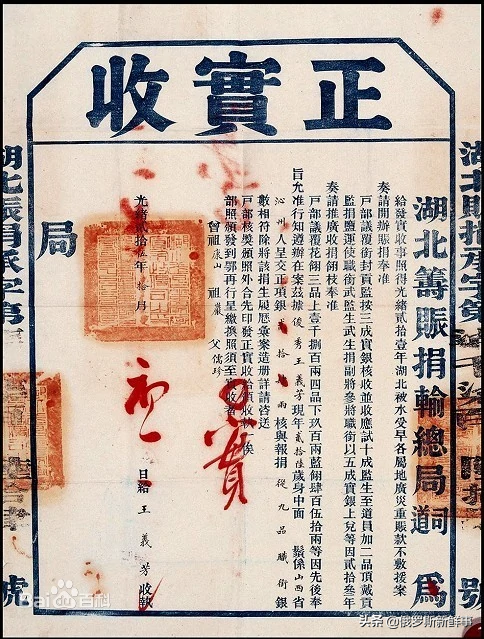 正實收
湖北籌賑捐輸總局司道 為
給發實收事照得光緒貳拾壹年湖北被水受旱各屬地廣災重賑款不敷援案
奏請開辦賑捐奉准
戶部議覆銜封貢監按三成實銀核收並收應試十成監生至道員加二品頂戴貢
監捐鹽運使職銜武監生武生捐副將參將職銜以五成實銀上兌等因貳拾叁年
奏請推廣收捐翎枝奉准
戶部議覆花翎三品上壹千捌百兩四品下玖百兩藍翎肆百伍拾兩等因先後奉
旨允准行知遵辦在案茲據俊秀王義芳現年貳拾陸歲身中面 鬚係山西省
沁州人呈交正項銀 拾 兩核與報捐從九品職銜銀
數相符除將該捐生履歷彙案造冊詳請咨送
戶部核獎頒照外合先印發正實收給領收執一俟
部照頒發到鄂再行呈繳換照須至實收者
曾祖康山 祖嚴 父儒珍
光緒貳拾伍年拾月 日給王義芳收執
局
湖北賑捐承字第 號
湖北賑捐承字第 號
Baidu百科
头条 @俄罗斯新鲜事